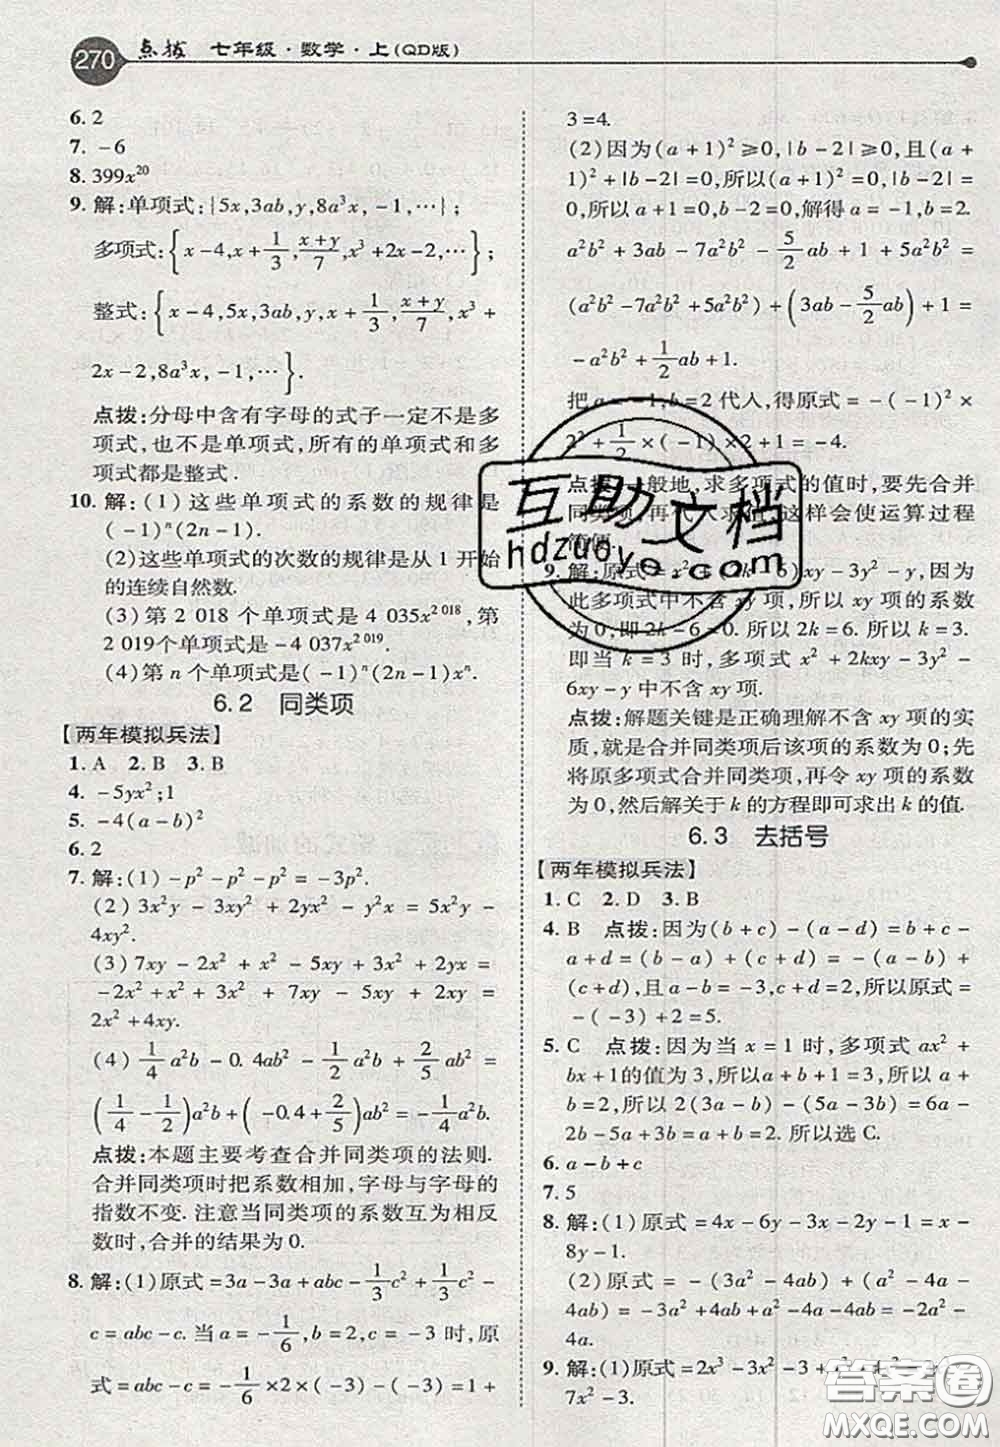 270 点拨 七年级·数学·上(QD版)
6. 2
7. -6
8. 399x^20
9. 解:单项式:{5x,3ab,y,8a³x,-1,…};
多项式:{x-4,x+1/3,(x+y)/7,x³+2x-2,…};
整式:{x-4,5x,3ab,y,x+1/3,(x+y)/7,x³+
2x-2,8a³x,-1,…}.
点拨:分母中含有字母的式子一定不是多
项式,也不是单项式,所有的单项式和多
项式都是整式.
10. 解:(1)这些单项式的系数的规律是
(-1)^n(2n-1).
(2)这些单项式的次数的规律是从1开始
的连续自然数.
(3)第2 018个单项式是4 035x^2 018,第
2 019个单项式是-4 037x^2 019.
(4)第n个单项式是(-1)^n(2n-1)x^n.
6.2 同类项
【两年模拟兵法】
1. A 2. B 3. B
4. -5yx²;1
5. -4(a-b)²
6. 2
7. 解:(1)-p²-p²-p²=-3p².
(2)3x²y-3xy²+2yx²-y²x=5x²y-
4xy².
(3)7xy-2x²+x²-5xy+3x²+2xy=
-2x²+x²+3x²+7xy-5xy+2xy=
2x²+4xy.
(4)1/4a²b-0.4ab²-1/2a²b+2/5ab²=
(1/4-1/2)a²b+(-0.4+2/5)ab²=-1/4a²b.
点拨:本题主要考查合并同类项的法则.
合并同类项时把系数相加,字母与字母的
指数不变.注意当同类项的系数互为相反
数时,合并的结果为0.
8. 解:(1)原式=3a-3a+abc-1/3c²+1/3c²-
c=abc-c.当a=-1/6,b=2,c=-3时,原
式=abc-c=-1/6×2×(-3)-(-3)=1+
3=4.
(2)因为(a+1)²≥0,|b-2|≥0,且(a+
1)²+|b-2|=0,所以(a+1)²=0,|b-2|=
0,所以a+1=0,b-2=0,解得a=-1,b=2.
a²b²+3ab-7a²b²-5/2ab+1+5a²b²=
(a²b²-7a²b²+5a²b²)+(3ab-5/2ab)+1=
-a²b²+1/2ab+1.
把a=-1,b=2代入,得原式=-(-1)²×
2²+1/2×(-1)×2+1=-4.
点拨:一般地,求多项式的值时,要先合并
同类项,再代入求值,这样会使运算过程
简便.
9. 解:原式=x²+(2k-6)xy-3y²-y,因为
此多项式中不含xy项,所以xy项的系数
为0,即2k-6=0.所以2k=6.所以k=3.
即当k=3时,多项式x²+2kxy-3y²-
6xy-y中不含xy项.
点拨:解题关键是正确理解不含xy项的实
质,就是合并同类项后该项的系数为0;先
将原多项式合并同类项,再令xy项的系数
为0,然后解关于k的方程即可求出k的值.
6.3 去括号
【两年模拟兵法】
1. C 2. D 3. B
4. B 点拨:因为(b+c)-(a-d)=b+c-
a+d=(b-a)+(c+d)=-(a-b)+
(c+d),且a-b=-3,c+d=2,所以原式=
-(-3)+2=5.
5. C 点拨:因为当x=1时,多项式ax²+
bx+1的值为3,所以a+b+1=3,所以a+
b=2,所以2(3a-b)-(5a-3b)=6a-
2b-5a+3b=a+b=2.所以选C.
6. a-b+c
7. 5
8. 解:(1)原式=4x-6y-3x-2y-1=x-
8y-1.
(2)原式=-(3a²-4a)+(a²-4a-
4a)=-3a²+4a+a²-4a-4a=-2a²-
4a.
9. 解:(1)原式=2x³-3x²-3+
7x²-3.
互助文档
hdzuoye.com
答案圈
MXQE.COM